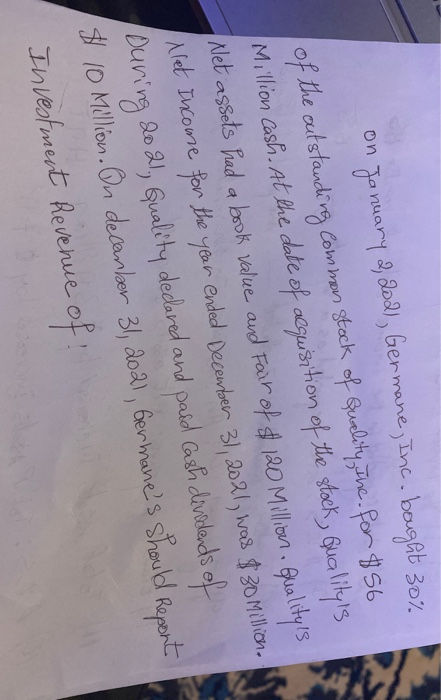 on January 2, 2021, Germane, Inc. bought 30%
of the outstanding common stock of Quality, Inc. for $56
Million cash. At the date of acquisition of the stock, Quality's
Net assets had a book value and Fair of $120 Million. Quality's
Net Income for the year ended December 31, 2021, was $30 Million.
During 2021, Quality declared and paid cash dividends of
$10 Million. On decamber 31, 2021, Germane's should Report
Investment Revenue of: